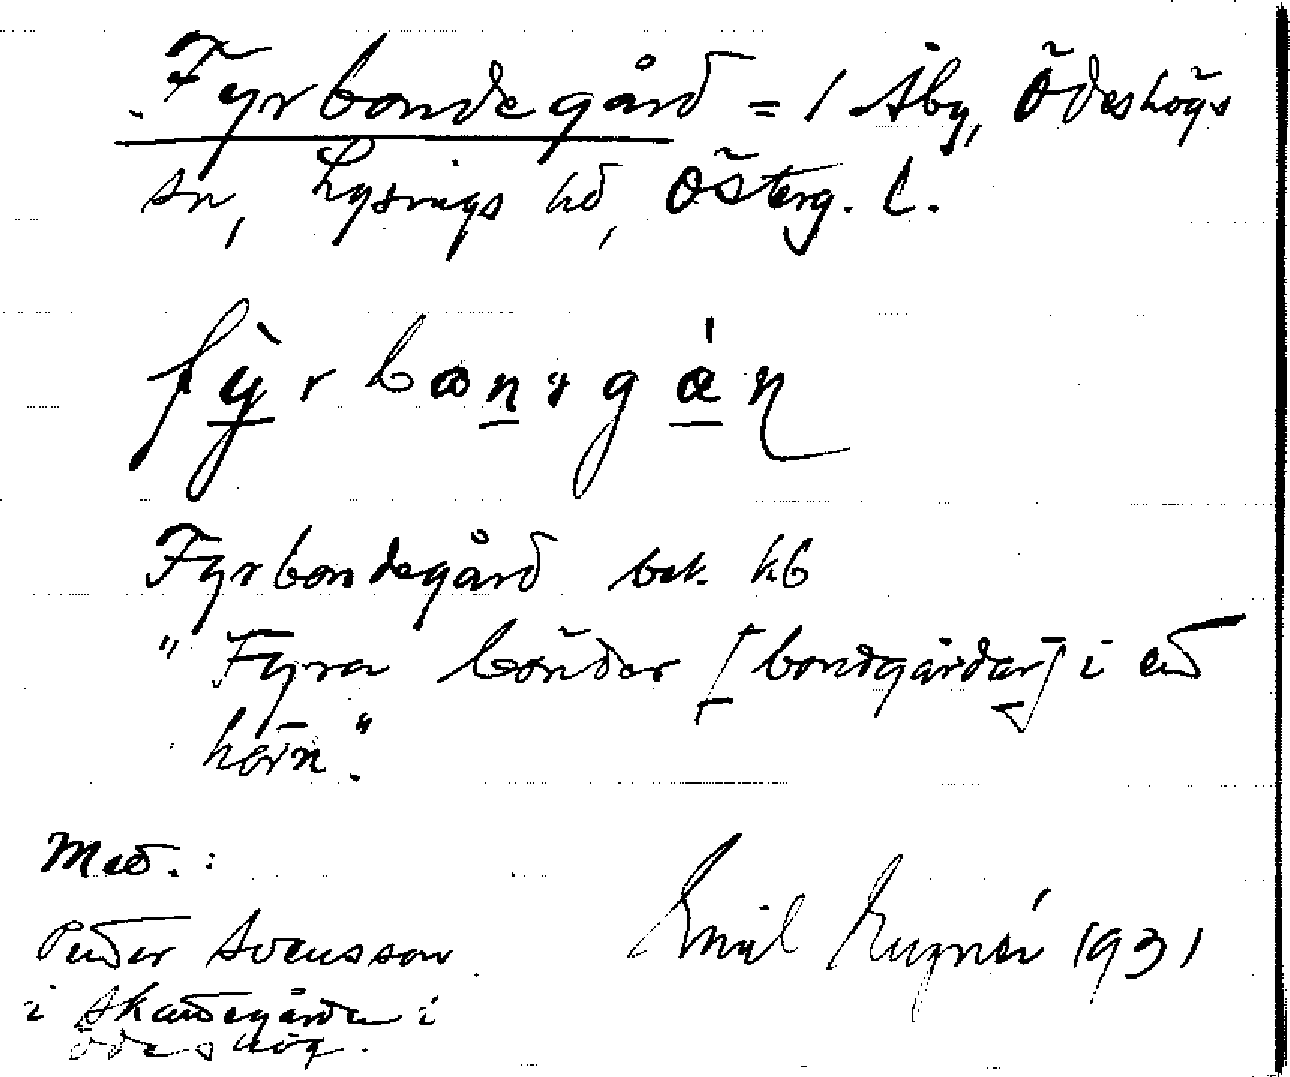 Fyrbondegård = / Åby, Ödeshögs
sn, Lysings hd, Österg. l.
Fyrbondegård bet. kb
"Fyra bönder [bondgårdar] i ett
hörn".
Med.:
Peder Svensson
i Skattegården i
Ödeshög.
Emil 1931